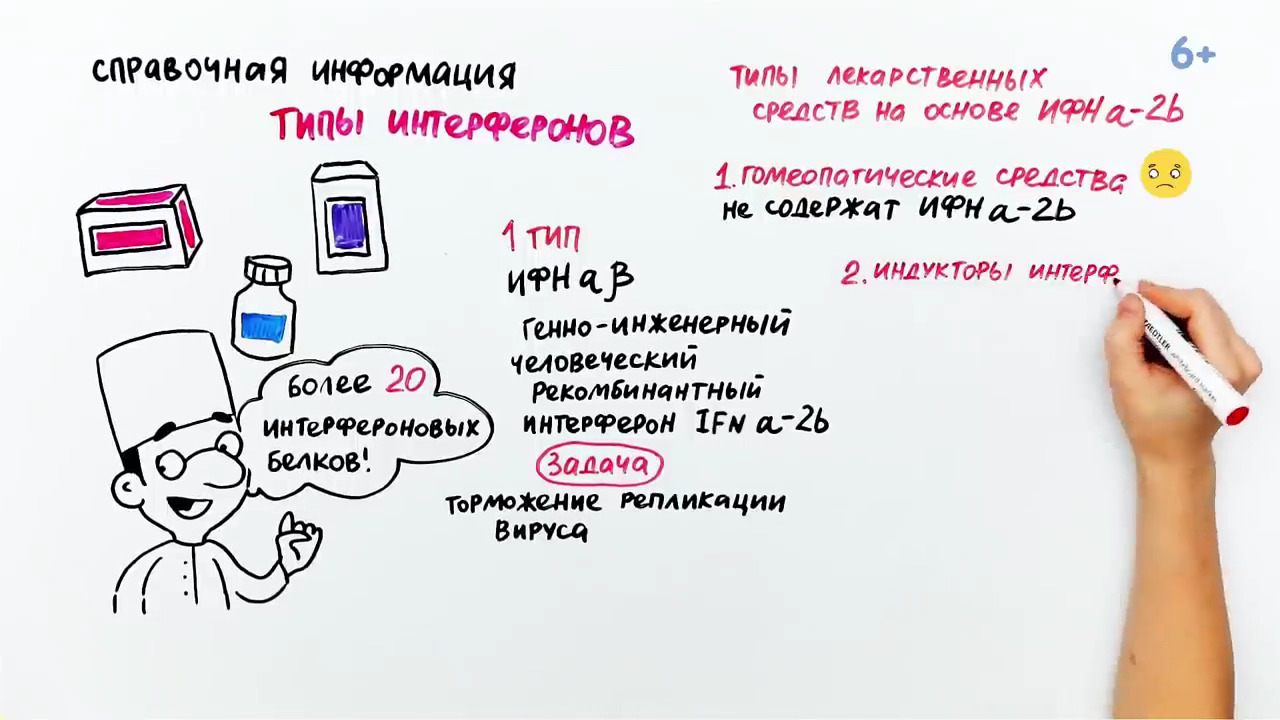 СПРАВОЧНАЯ ИНФОРМАЦИЯ
ТИПЫ ИНТЕРФЕРОНОВ
более 20
интерфероновых
белков!
1 ТИП
ИФН α β
Генно-инженерный
человеческий
рекомбинантный
интерферон IFN α-2b
Задача
торможение репликации
вируса
6+
ТИПЫ ЛЕКАРСТВЕННЫХ
СРЕДСТВ НА ОСНОВЕ ИФН α-2b
1. ГОМЕОПАТИЧЕСКИЕ СРЕДСТВА
НЕ СОДЕРЖАТ ИФН α-2b
2. ИНДУКТОРЫ ИНТЕРФ
STAEDTLER